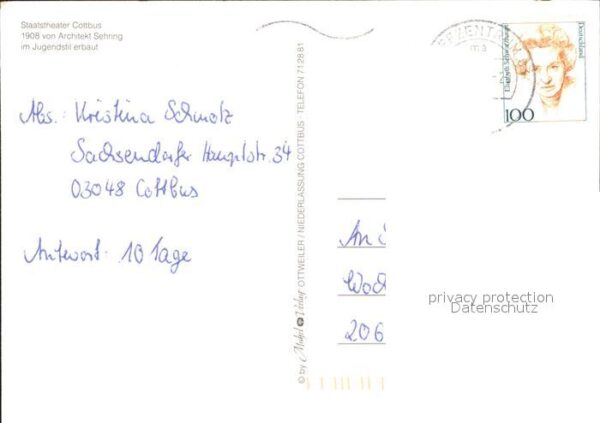 Staatstheater Cottbus
1908 von Architekt Sehring
im Jugendstil erbaut
Abs.: Kristina Schmolz
Sachsendorfer Hauptstr. 34
03048 Cottbus
Antwort: 10 Tage
© by Michel + Verlag OTTWEILER / NIEDERLASSUNG COTTBUS · TELEFON 71 28 81
Elisabeth Schwarzhaupt
Deutschland
100
An
206
privacy protection
Datenschutz